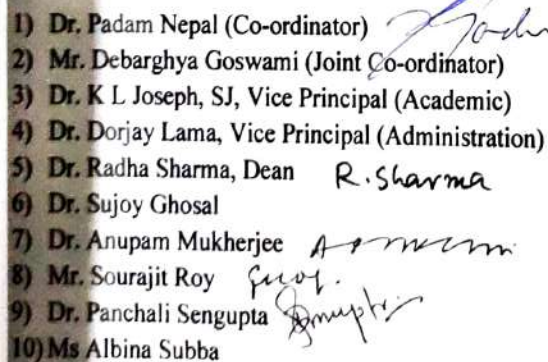 1) Dr. Padam Nepal (Co-ordinator)
2) Mr. Debarghya Goswami (Joint Co-ordinator)
3) Dr. K L Joseph, SJ, Vice Principal (Academic)
4) Dr. Dorjay Lama, Vice Principal (Administration)
5) Dr. Radha Sharma, Dean R. Sharma
6) Dr. Sujoy Ghosal
7) Dr. Anupam Mukherjee
8) Mr. Sourajit Roy
9) Dr. Panchali Sengupta
10) Ms Albina Subba